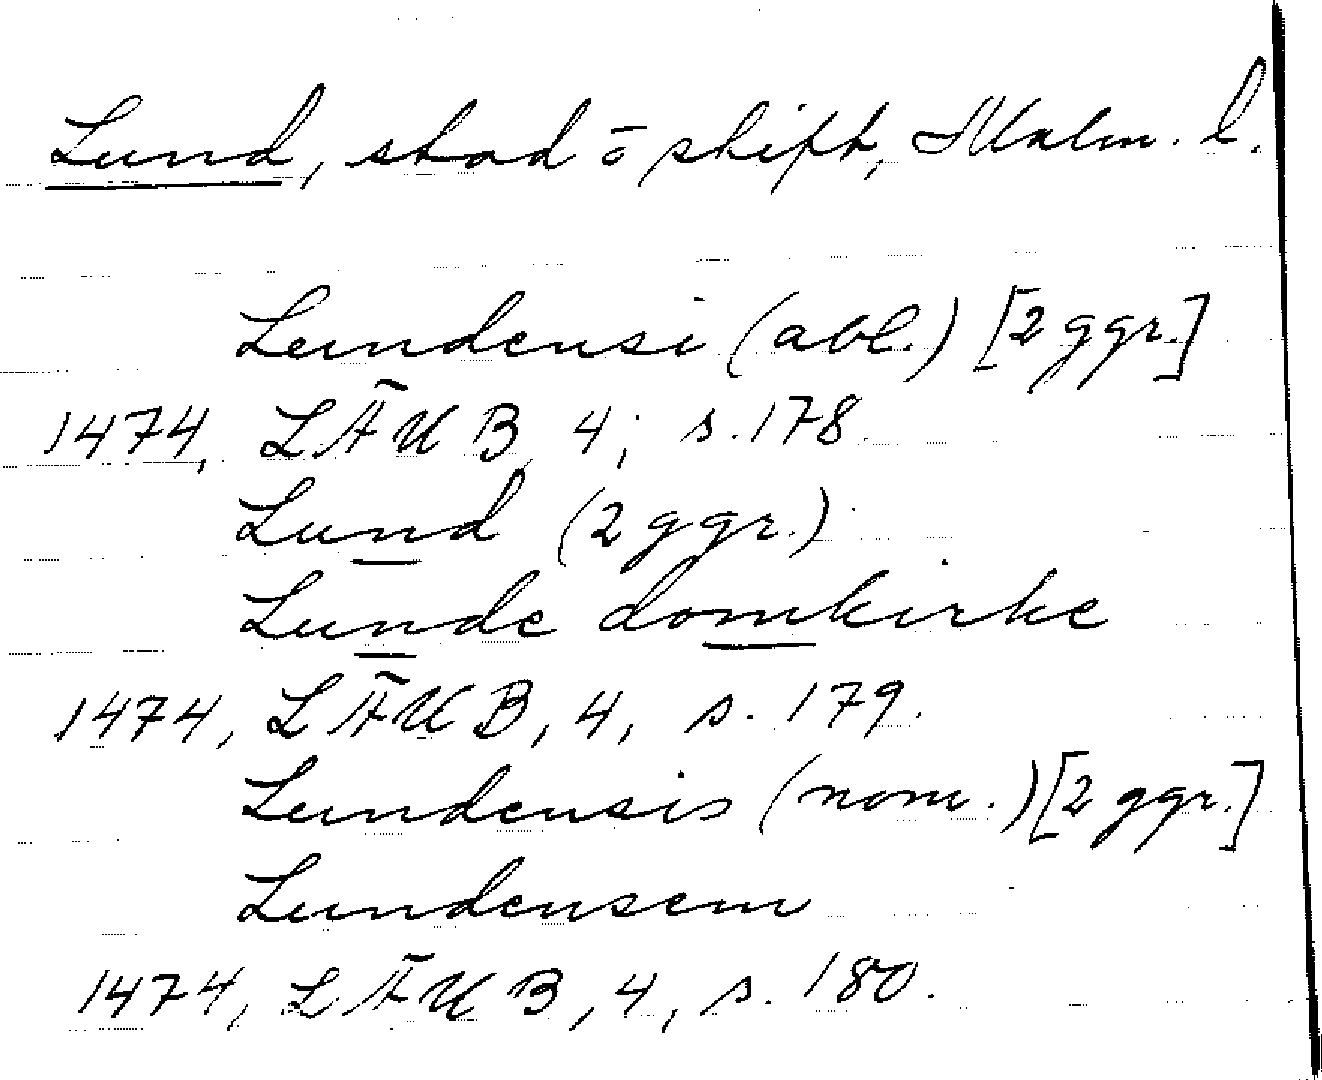 Lund, stad o skift, Malm. l.
Lundensi (abl.) [2 ggr.]
1474, LÄUB, 4, s. 178.
Lund (2 ggr.)
Lunde domkirke
1474, LÄUB, 4, s. 179.
Lundensis (nom.) [2 ggr.]
Lundensem
1474, LÄUB, 4, s. 180.